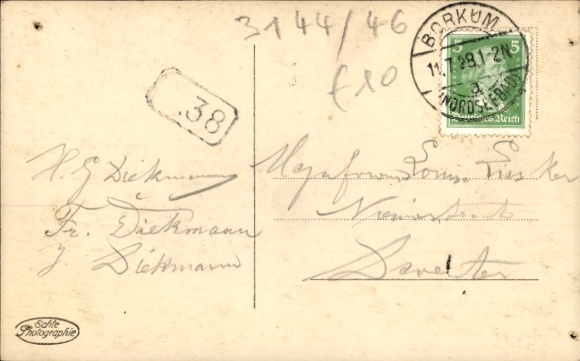 3144/46
£10
BORKUM
11.7.28.1-2N
a
(NORDSEEBAD)
5 5
Deutsches Reich
.38
H. G. Diekmann
Fr. Diekmann
J. Diekmann
Mejufvrouw
Deventer
Echte
Photographie